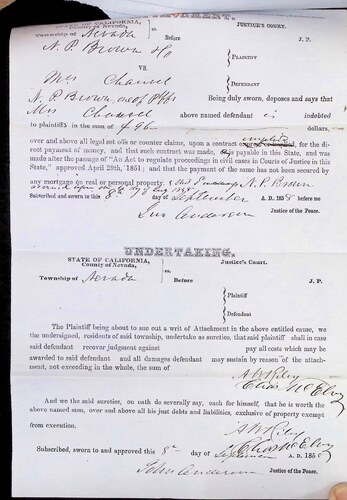 STATE OF CALIFORNIA,
County of Nevada, ss.
JUSTICE'S COURT.
Township of Nevada Before J. P.
N. P. Brown & Co
PLAINTIFF
VS.
DEFENDANT
Mrs Chansel
N. P. Brown, one of Plffs Being duly sworn, deposes and says that
Mrs Chansel above named defendant is indebted
to plaintiffs in the sum of $ 96 dollars,
over and above all legal set offs or counter claims, upon a contract implied for the di-
rect payment of money, and that such contract was made, & is payable in this State, and was
made after the passage of "An Act to regulate proceedings in civil cases in Courts of Justice in this
State," approved April 29th, 1851; and that the payment of the same has not been secured by
any mortgage on real or personal property. N. P. Brown
Subscribed and sworn to this 8th day of September A. D. 1858 before me
Anderson Justice of the Peace.
UNDERTAKING.
STATE OF CALIFORNIA,
County of Nevada, ss.
Justice's Court.
Township of Nevada Before J. P.
Plaintiff
vs.
Defendant
The Plaintiff being about to sue out a writ of Attachment in the above entitled cause, we
the undersigned, residents of said township, undertake as sureties, that said plaintiff shall in case
said defendant recover judgment against pay all costs which may be
awarded to said defendant and all damages defendant may sustain by reason of the attach-
ment, not exceeding in the whole, the sum of
And we the said sureties, on oath do severally say, each for himself, that he is worth the
above named sum, over and above all his just debts and liabilities, exclusive of property exempt
from execution.
Subscribed, sworn to and approved this 8th day of September A. D. 1858
John Anderson Justice of the Peace.